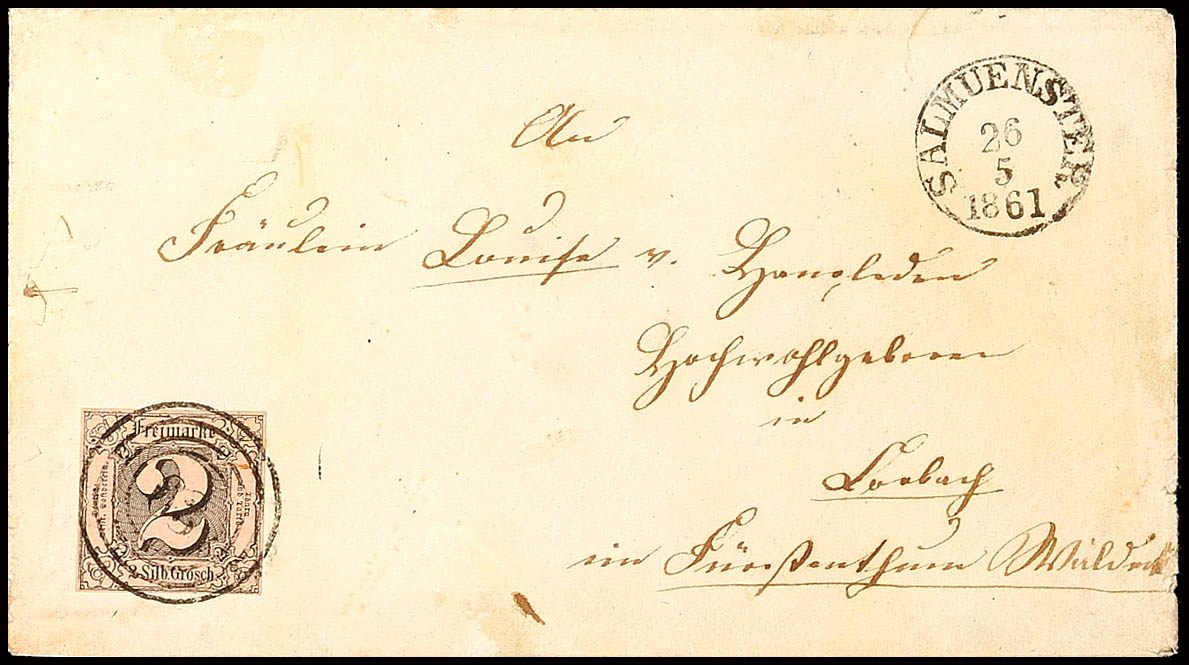 SALMUENSTER
26
5
1861
An
Fräulein Louise v. Hanxleden
Hochwohlgeboren
in
Corbach
im Fürstenthum Waldeck
Freimarke
2
Silb. Grosch.